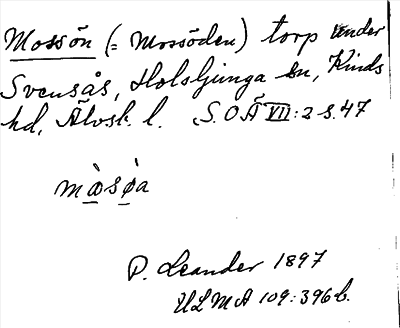 Mossön (= Mossöden) torp under
Svensås, Holsljunga sn, Kinds
hd, Älvsb. l. S.O.Ä VII:2 s. 47
mɷ̀sø̀a
P. Leander 1897
ULMA 109:396b.